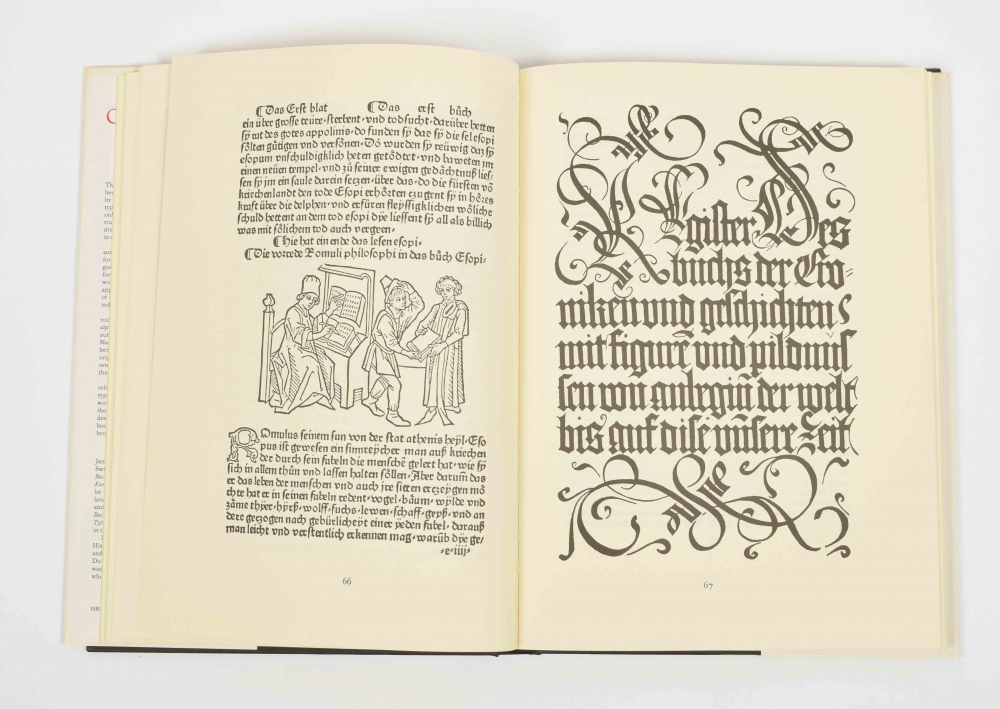 ¶Das Erst blat ¶Das erst bůch
ein über grosse teüre, sterbent, vnd todsucht, darüber hetten
sÿ rat des gotes appolinis, do funden sÿ das sÿ die sel esopi
sölten gütigen vnd versönen, Do wurden sÿ reüwig daz sÿ
esopum vnschuldigklich heten getödtet, vnd baweten im
einen neüen tempel, vnd zů seiner ewigen gedächtnuß lies-
sen sÿ jm ein saule darein seczen, über das, do die fürsten vō
kriechenland den tode Esopi erhörten czugent sÿ in hōres
kraft über die delphen, vnd erfüren fleÿssigklichen wöliche
schuld hettent an dem tod esopi dÿe liessent sÿ all als billich
was mit sölichem tod auch vergeen,
¶Hie hat ein ende das lesen esopi,
¶Die vorrede Romuli philosophi in das bůch Esopi,
ROmulus seinem sun von der stat athenis heÿl, Eso
pus ist gewesen ein sinnreÿcher man auß kriechen
der durch sein fabeln die menschē gelert hat, wie sÿ
sich in allem thůn vnd lassen halten söllen, Aber darum̄ das
er das leben der menschen vnd auch jre sitten erczeÿgen mö
chte hat er in seinen fabeln redent, vogel, bäum, wÿlde vnd
zäme thÿer, hÿrß, wolff, fuchs, lewen, schaff, geÿß, vnd an
dere geczogen nach gebürlicheÿt einer ÿeden fabel, darauß
man leicht vnd verstentlich erkennen mag, warūb dÿe ge-
,e,iiij,
66
REgister Des
buchs der Cro-
niken vnd geschichten
mit figurē vnd pildnus
sen von anbegin̄ der welt
bis auf dise vn̄sere Zeit
67